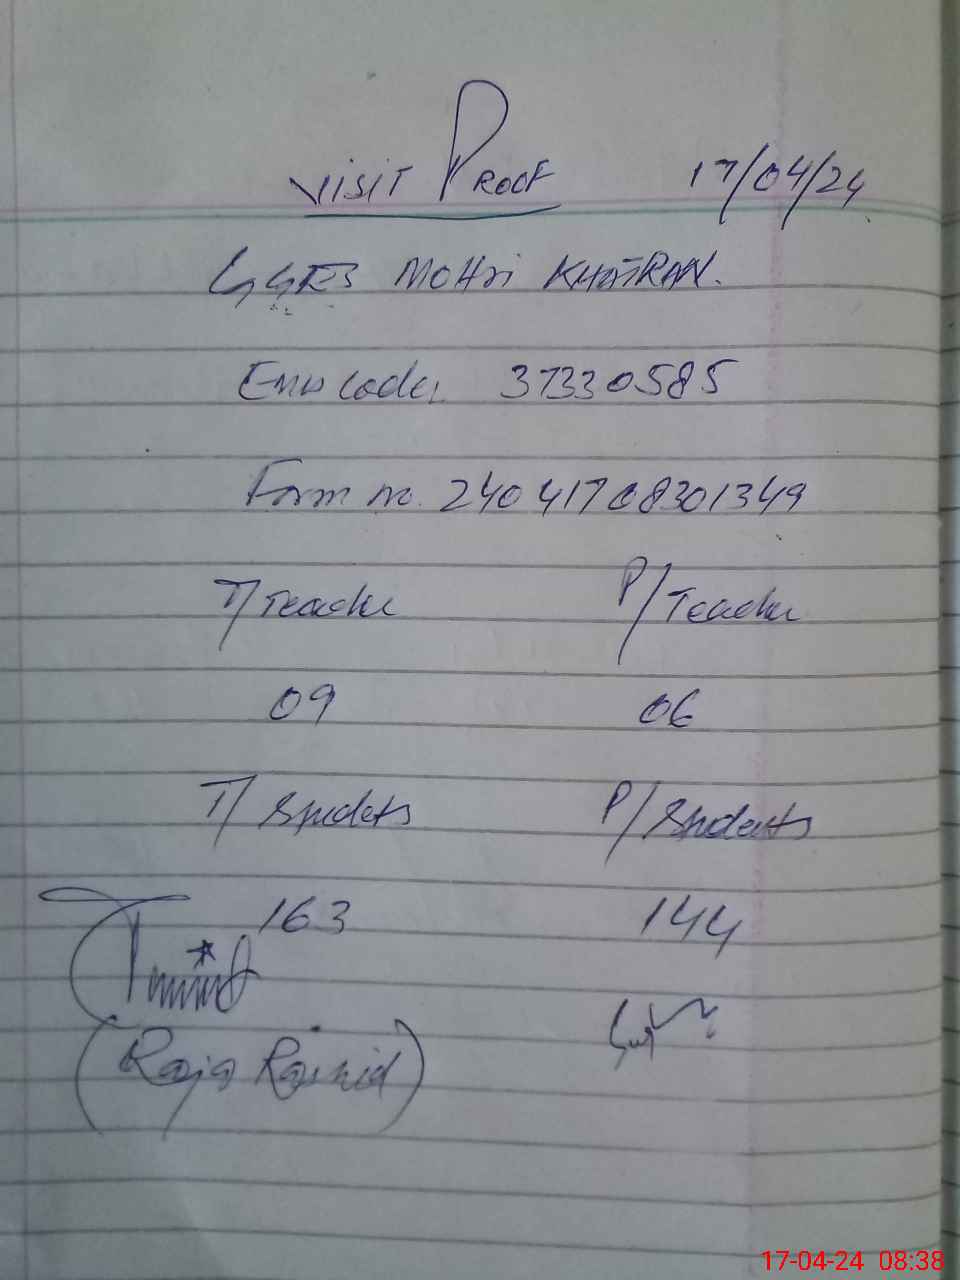 VISIT PROOF 17/04/24
GGES MOHRI KHATRAN.
Emis code: 37330585
Form no. 24041708301349
T/Teacher P/Teacher
09 06
T/Students P/Students
163 144
(Raja Rashid)
17-04-24 08:38